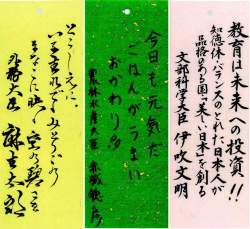 教育は未来への投資!!
知徳体バランスのとれた日本人が
品格ある国"美しい日本"を創る
文部科学大臣 伊吹文明
今日も元気だ
ごはんがうまい
おかわり!!
農林水産大臣 赤城徳彦
とこしえに
まなこに映へ
外務大臣 麻生太郎